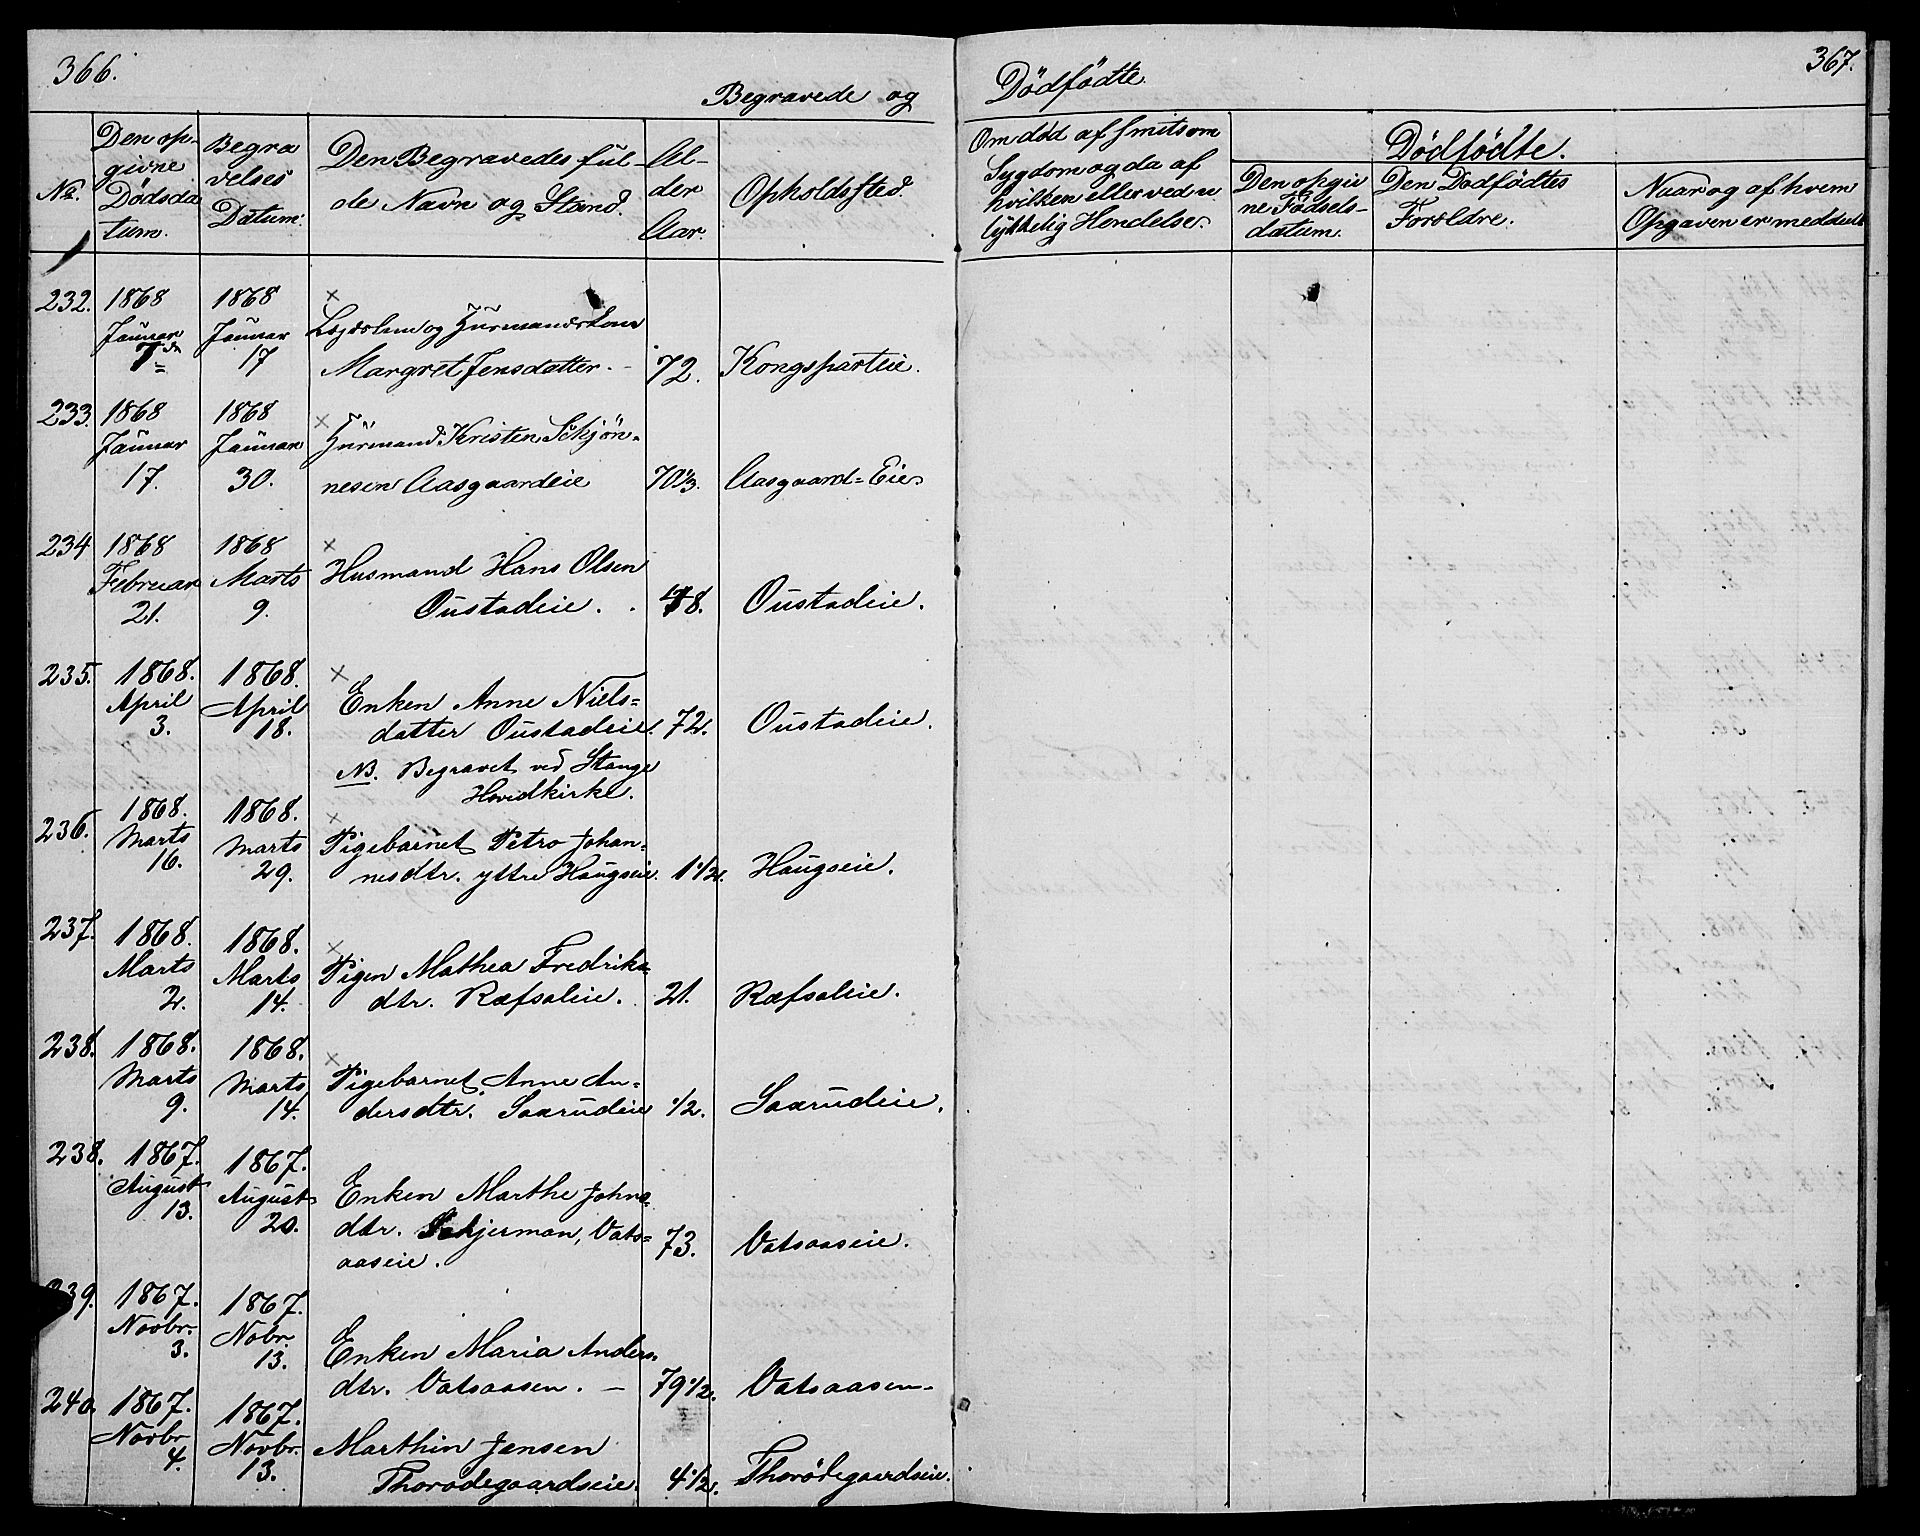 366.
Begravede og
No.
Den op-
givne
Dødsda
tum.
Begra
velses
Datum.
Den Begravedes ful-
de Navn og Stand.
Al-
der
Aar.
Opholdssted.
232. 1868 Januar 17
1868 Januar
og Hüsmandskone
Margret Jensdatter. 72. Kongspartiie.
233. 1868 Januar 17.
1868 Januar 30.
Hüsmand Kristen Schjøn-
nesen Aasgaardeie 70 1/3. Aasgaard-Eie
234 1868 Februar 21.
1868 Marts 9.
Husmand Hans Olsen
Oustadeie. 48. Oustadeie.
235. 1868. April 3.
1868. April 18.
Enken Anne Niels-
datter Oustadeie. 72. Oustadeie.
NB. Begravet ved Stange
Hovidkirke.
236. 1868. Marts 16.
1868. Marts 29.
Pigebarnet Petro Johan-
nesdtr. yttre Haugseie. 1 1/2. Haugseie.
237. 1868. Marts 2.
1868. Marts 14.
Pigen Mathea Fredriks-
dtr. Ræfsaleie. 21. Ræfsaleie.
238. 1868. Marts 9.
1868. Marts 14.
Pigebarnet Anne An-
dersdtr. Saxrudeie 1/2. Saxrudeie.
238. 1867. August 13.
1867. August 20.
Enken Marthe Johns-
dtr. Skjerman, Vats-
aaseie. 73. Vatsaaseie.
239. 1867. Novbr. 3.
1867. Nobr. 13.
Enken Maria Anders-
dtr. Vatsaasen. — 79 1/2. Vatsaasen-
240. 1867. Novbr. 4.
1867. Novbr. 13.
Marthin Jensen
Thorødegaardseie. 4 1/2. Thorødegaardseie.
367.
Dödfödte.
Om død af smitsom
Sygdom og da af
hvilken eller ved u
lykkelig Hendelse.
Dödfödte.
Den opgiv
ne Fødsels-
datum.
Den Dødfødtes
Forældre.
Naar og af hvem
Opgaven er meddeelt